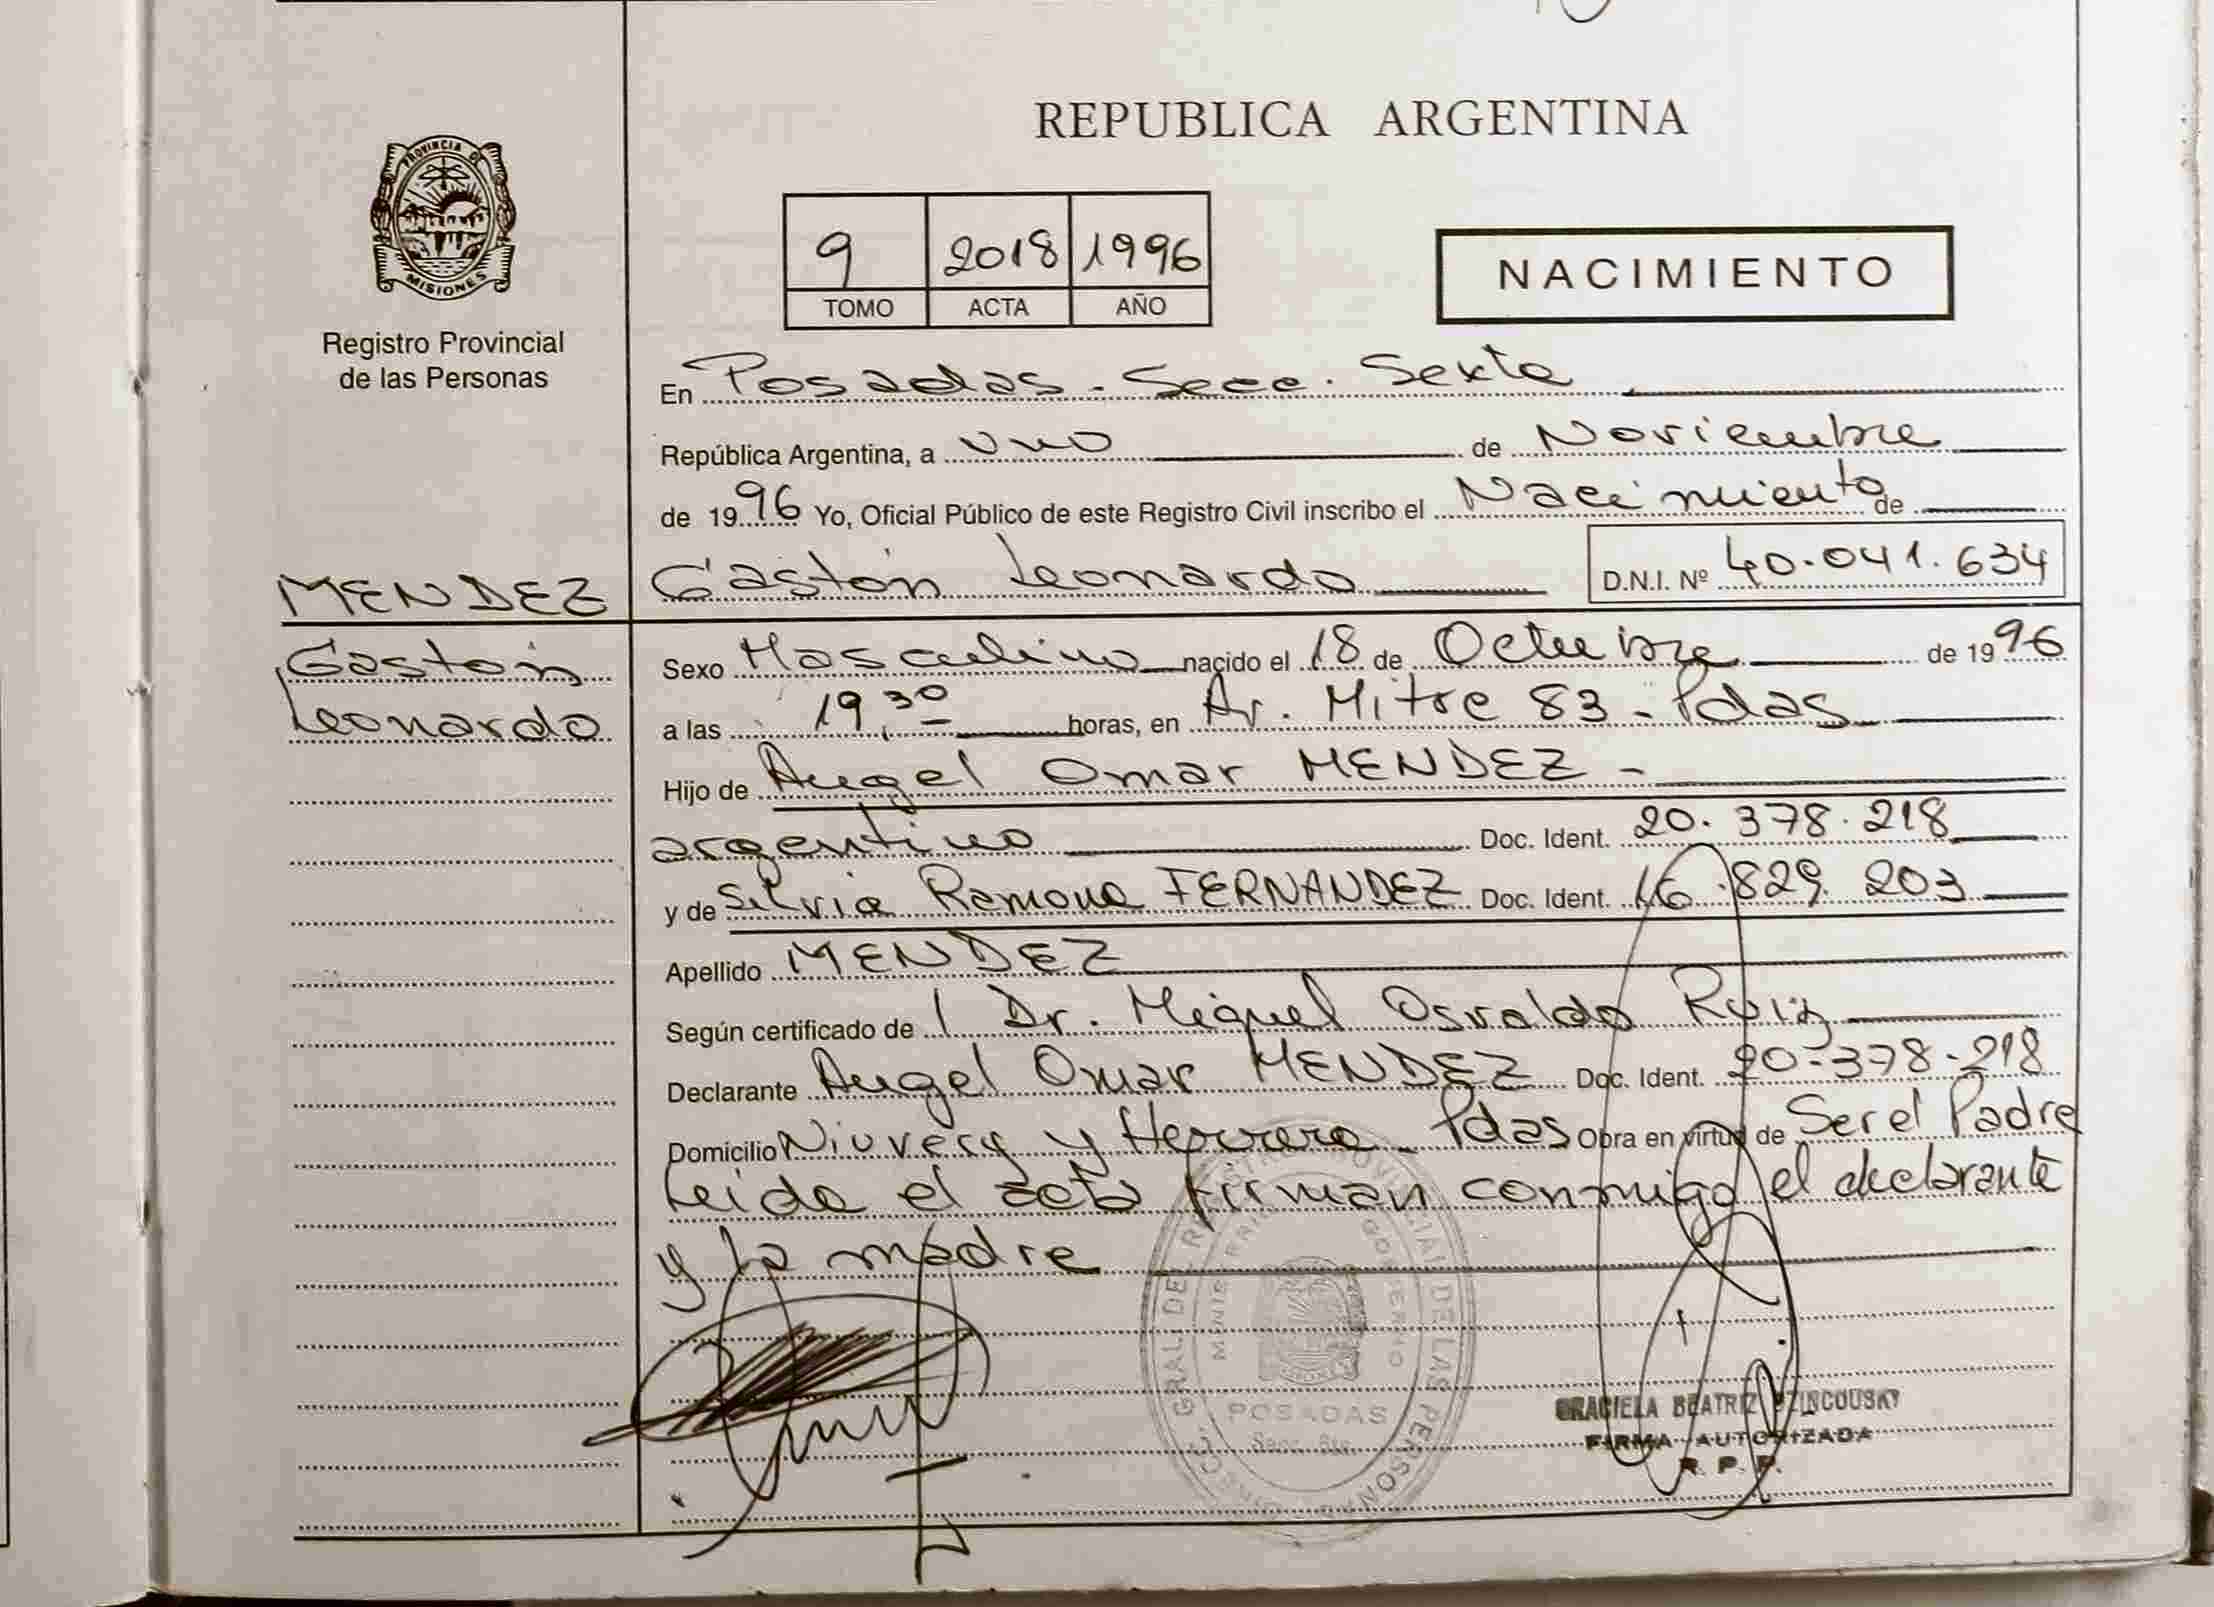 PROVINCIA DE
MISIONES
Registro Provincial
de las Personas
MENDEZ
Gastón
Leonardo
REPUBLICA ARGENTINA
9 2018 1996
TOMO ACTA AÑO
NACIMIENTO
En Posadas - Secc. Sexta
República Argentina, a uno de Noviembre
de 1996 Yo, Oficial Público de este Registro Civil inscribo el Nacimiento de
Gastón Leonardo D.N.I. Nº 40.041.634
Sexo Masculino nacido el 18 de Octubre de 1996
a las 19,30 horas, en Av. Mitre 83 - Pdas
Hijo de Angel Omar MENDEZ -
argentino Doc. Ident. 20.378.218
y de Silvia Ramona FERNANDEZ Doc. Ident. 16.829.203
Apellido MENDEZ
Según certificado de l Dr. Miguel Osvaldo Ruiz
Declarante Angel Omar MENDEZ Doc. Ident. 20-378-218
Domicilio y Herrera - Pdas Obra en virtud de Ser el Padre
Leida el acta firman conmigo el declarante
y la madre
POSADAS
Secc. 6ta.
GRACIELA BEATRIZ
FIRMA AUTORIZADA
R. P. P.